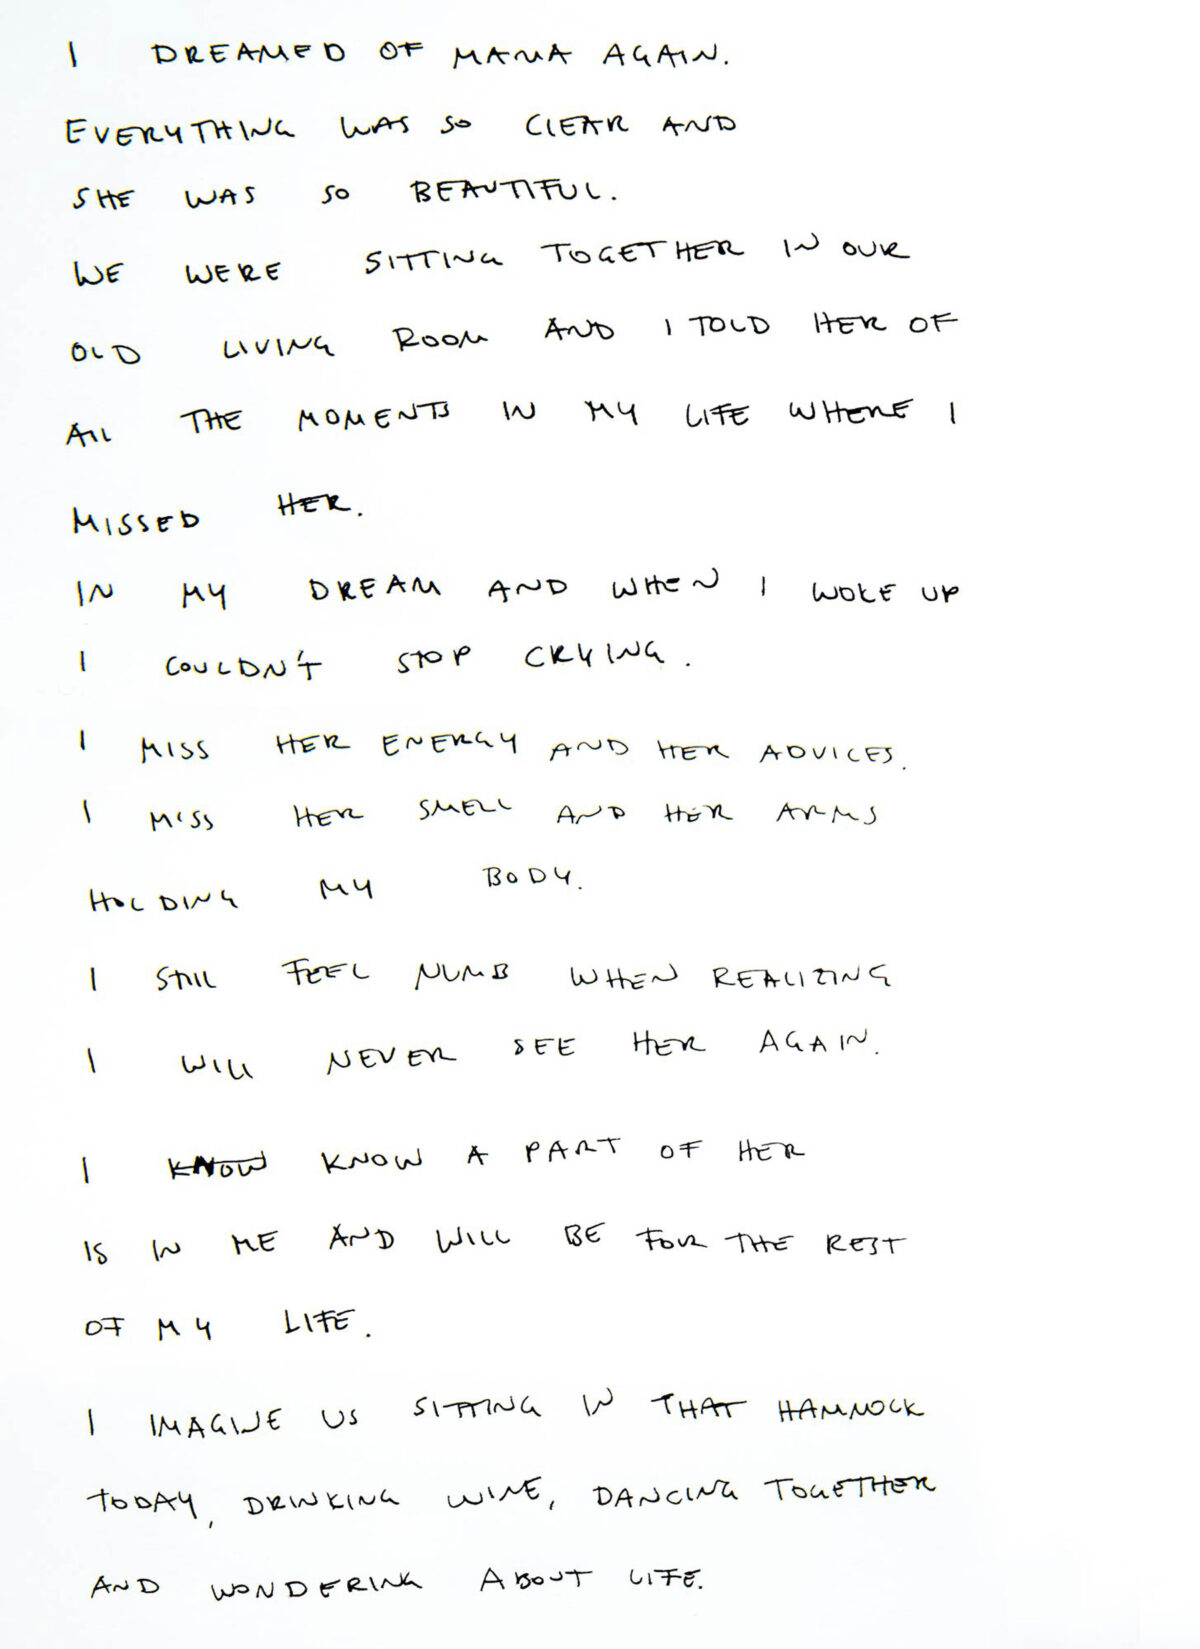 I DREAMED OF MAMA AGAIN.
EVERYTHING WAS SO CLEAR AND
SHE WAS SO BEAUTIFUL.
WE WERE SITTING TOGETHER IN OUR
OLD LIVING ROOM AND I TOLD HER OF
ALL THE MOMENTS IN MY LIFE WHERE I
MISSED HER.
IN MY DREAM AND WHEN I WOKE UP
I COULDN'T STOP CRYING.
I MISS HER ENERGY AND HER ADVICES.
I MISS HER SMELL AND HER ARMS
HOLDING MY BODY.
I STILL FEEL NUMB WHEN REALIZING
I WILL NEVER SEE HER AGAIN.
I KNOW KNOW A PART OF HER
IS IN ME AND WILL BE FOR THE REST
OF MY LIFE.
I IMAGINE US SITTING IN THAT HAMMOCK
TODAY, DRINKING WINE, DANCING TOGETHER
AND WONDERING ABOUT LIFE.